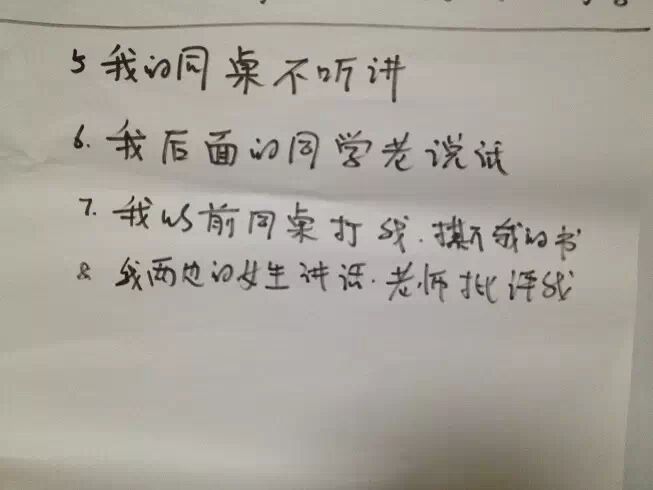 5 我的同桌不听讲
6. 我后面的同学老说话
7. 我以前同桌打我.撕我的书
8 我两边的女生讲话.老师批评我